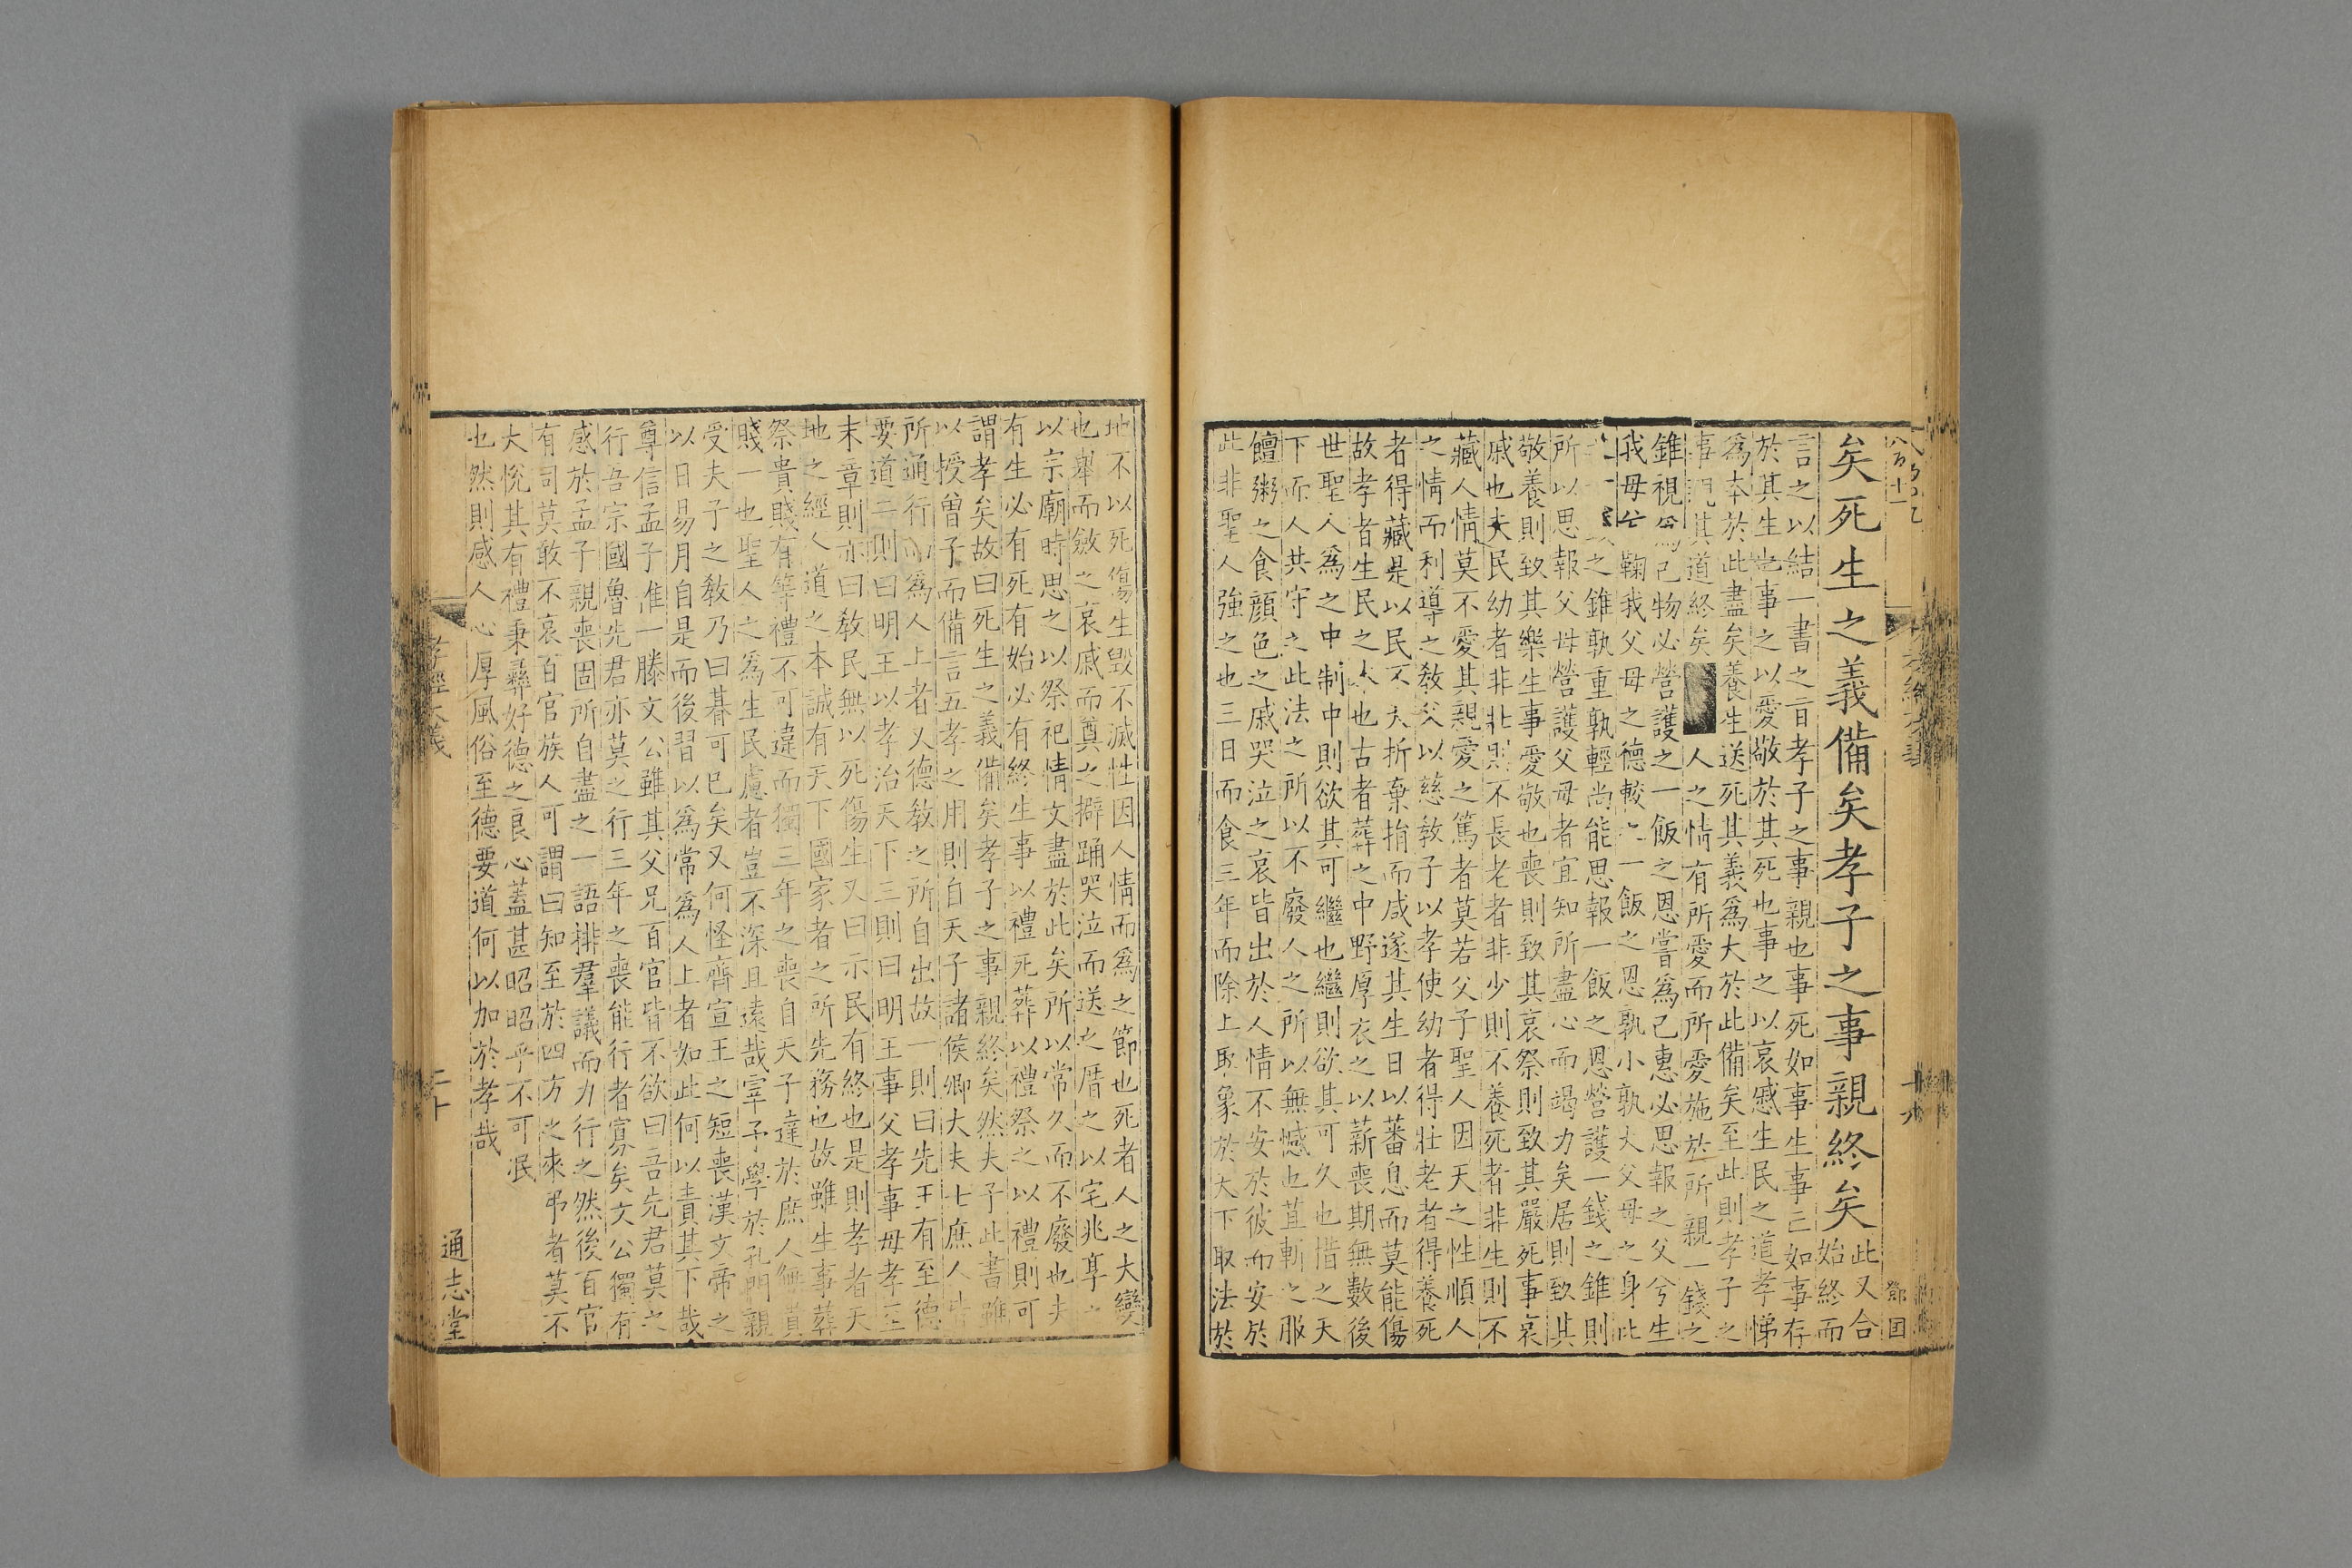 矣死生之義備矣孝子之事親終矣
此又合
始終而
言之以結一書之旨孝子之事親也事死如事生事亡如事存
於其生也事之以愛敬於其死也事之以哀慼生民之道孝悌
爲本於此盡矣養生送死其義爲大於此備矣至此則孝子之
事親其道終矣 人之情有所愛而所愛施於所親一錢之
錐視爲己物必營護之一飯之恩嘗爲己惠必思報之父兮生
我母兮鞠我父母之德較之一飯之恩孰小孰大父母之身比
之錐孰重孰輕尚能思報一飯之恩營護一錢之錐則
所以思報父母營護父母者宜知所盡心而竭力矣居則致其
敬養則致其樂生事愛敬也喪則致其哀祭則致其嚴死事哀
戚也夫民幼者非壯則不長老者非少則不養死者非生則不
藏人情莫不愛其親愛之篤者莫若父子聖人因天之性順人
之情而利導之教父以慈教子以孝使幼者得壯老者得養死
者得藏是以民不夭折棄捐而咸遂其生日以蕃息而莫能傷
故孝者生民之本也古者葬之中野厚衣之以薪喪期無數後
世聖人爲之中制中則欲其可繼也繼則欲其可久也措之天
下而人共守之此法之所以不廢人之所以無憾也苴斬之服
饘粥之食顔色之戚哭泣之哀皆出於人情不安於彼而安於
此非聖人強之也三日而食三年而除上取象於天下取法於
鄧国
地不以死傷生毀不滅性因人情而爲之節也死者人之大變
也舉而斂之哀戚而奠之擗踊哭泣而送之厝之以宅兆享之
以宗廟時思之以祭祀情文盡於此矣所以常久而不廢也夫
有生必有死有始必有終生事以禮死葬以禮祭之以禮則可
謂孝矣故曰死生之義備矣孝子之事親終矣然夫子此書雖
以授曾子而備言五孝之用則自天子諸侯卿大夫士庶人皆
所通行而爲人上者又德教之所自出故一則曰先王有至德
要道二則曰明王以孝治天下三則曰明王事父孝事母孝至
末章則亦曰教民無以死傷生又曰示民有終也是則孝者天
地之經人道之本誠有天下國家者之所先務也故雖生事葬
祭貴賤有等禮不可違而獨三年之喪自天子達於庶人無貴
賤一也聖人之爲生民慮者豈不深且遠哉宰予學於孔門親
受夫子之教乃曰朞可已矣又何怪齊宣王之短喪漢文帝之
以日易月自是而後習以爲常爲人上者如此何以責其下哉
尊信孟子惟一滕文公雖其父兄百官皆不欲曰吾先君莫之
行吾宗國魯先君亦莫之行三年之喪能行者寡矣文公獨有
感於孟子親喪固所自盡之一語排羣議而力行之然後百官
有司莫敢不哀百官族人可謂曰知至於四方之來弔者莫不
大悅其有禮秉彝好德之良心蓋甚昭昭乎不可泯
也然則感人心厚風俗至德要道何以加於孝哉
孝經大義
二十
通志堂